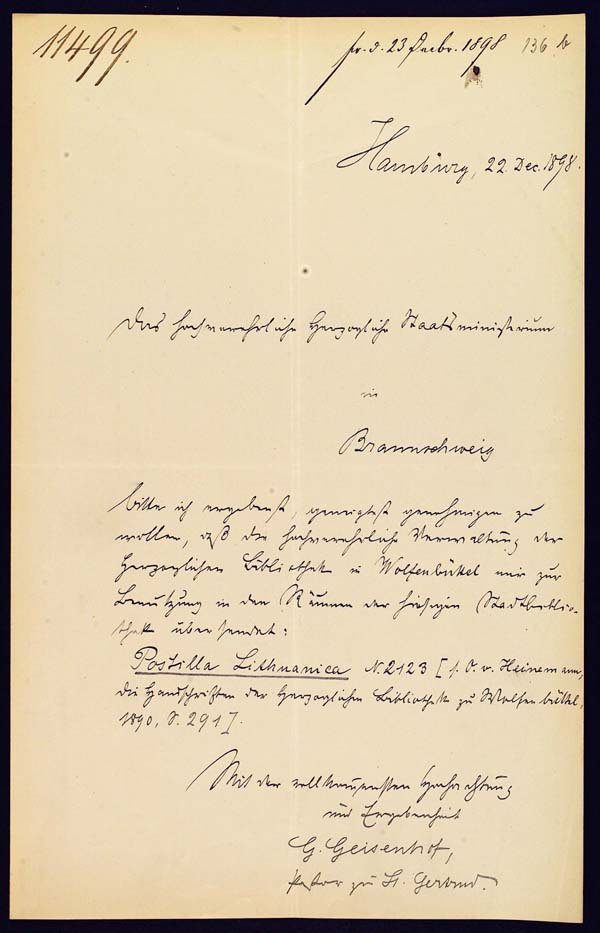 11499.
pr. d. 23 Decbr. 1898 136 b
Hamburg, 22. Dec. 1898.
Das hochverehrliche Herzogliche Staatsministerium
in
Braunschweig
bitte ich ergebenst, geneigtest genehmigen zu
wollen, daß die hochverehrliche Verwaltung der
Herzoglichen Bibliothek in Wolfenbüttel mir zur
Benutzung in den Räumen der hiesigen Stadtbiblio-
thek übersendet:
Postilla Lithuanica N. 2123 [s. O. v. Heinemann,
die Handschriften der Herzoglichen Bibliothek zu Wolfenbüttel,
1890, S. 291].
Mit der vollkommensten Hochachtung
und Ergebenheit
G. Geisenhof,
Pastor zu St. Gertrud.